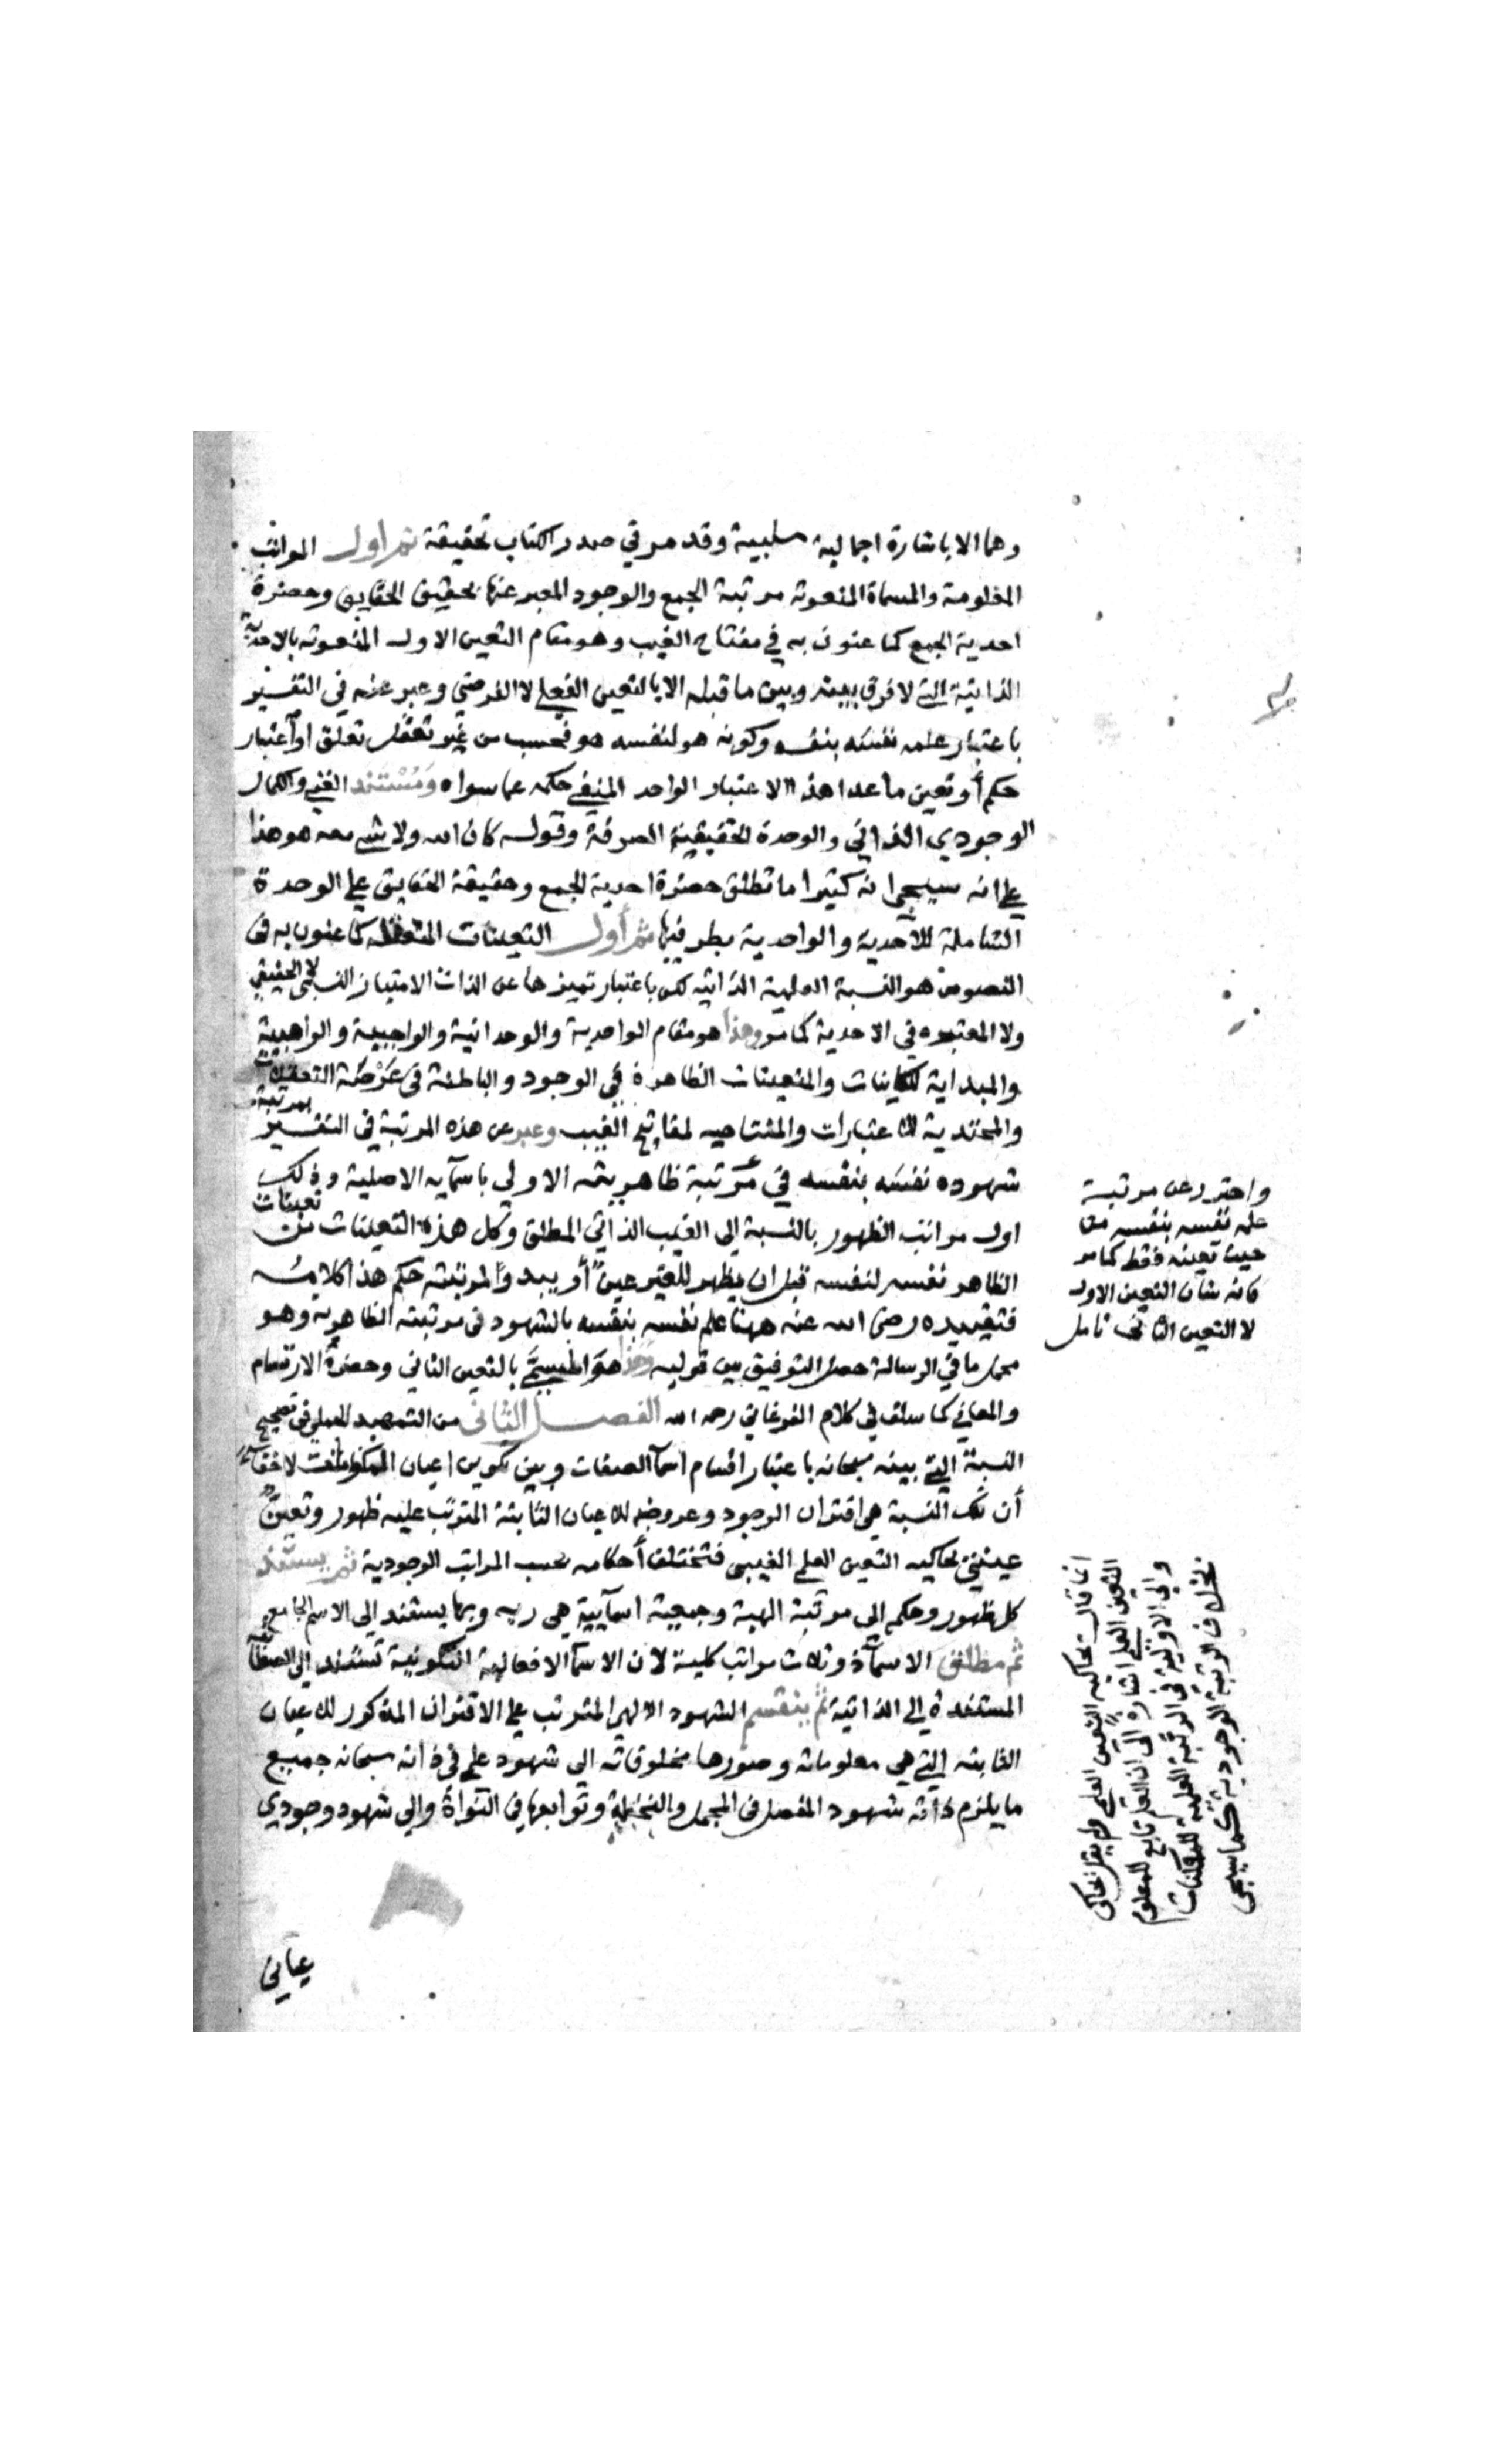 وهما الا باشارة اجمالية سلبية وقد مر في صدر الكتاب تحقيقة ثم اول المراتب
المعلومة والمسماة المنعوتة مرتبة الجمع والوجود المعبر عنها بحقيقة الحقايق وحضرة
احدية الجمع كما عنون به في مفتاح الغيب وهو مقام التعين الاول المنعوته بالاحدية
الذاتية التي لا فرق بينه وبين ما قبله الا بالتعين الفعلي لا الفرضي وعبر عنه في التفسير
باعتبار علمه نفسَه بنفسه وكونه هو لنفسه هو فحسب من غير تعقل تعلق او اعتبار
حكم أو تعين ما عدا هذا الاعتبار الواحد المنفي حكمه عما سواه ومُسْتَنَد الغني والكمال
الوجودي الذاتي والوحدة الحقيقية الصرفة وقوله كان الله ولا شي معه هو هذا
علي انه سيجي انه كثيرا ما تطلق حضرة احدية الجمع وحقيقة الحقايق علي الوحدة
الشاملة للأحدية والواحدية بطرفيها ثم أول التعينات المتعقلة كما عنون به في
النصوص هو النسبة العلمية الذاتيه لكن باعتبار تميزها عن الذات الامتياز النسبي لا الحقيقي
ولا المعتبره في الاحدية كما مر وهذا هو مقام الواحدية والوحدانية والواجبية والواهبية
والمبداية للكاينات والمتعينات الظاهرة في الوجود والباطنة في عَرْصَة التعقلات
والمحتدية للاعتبارات والمفتاحيه لمفاتيح الغيب وعبر عن هذه المرتبة في التفسير بمرتبة
شهوده نفسَه بنفسه في مرتبة ظاهريته الاولي باسمآيه الاصلية وذلك
اول مراتب الظهور بالنسبة إلي الغيب الذاتي المطلق وكل هذه التعينات من تعينات
الظاهر نفسه لنفسه قبل ان يظهر للغير عينٌ أو يبدو لمرتبته حكم هذا كلامُه
فتقييده رضي الله عنه ههنا علم نفسه بنفسه بالشهود في مرتبته الظاهريه وهو
محمل ما في الرسالة حصل التوفيق بين قوليه وهذا هو المسمَّي بالتعين الثاني وحضرة الارتسام
والمعاني كما سلف في كلام الفرغاني رحمه الله الفصل الثاني من التمهيد الجملي في تصحيح
النسبة التي بينه سبحانه باعتبار اقسام اسمآ الصفات وبين تكوين اعيان المكونات لا خفآء
أن تلك النسبة هي اقتران الوجود وعروضه للاعيان الثابتة المترتب عليه ظهور وتعينٌ
عينيٌ يحاكيه التعين العلمي الغيبي فتختلف أحكامه بحسب المراتب الوجودية ثم يستند
كل ظهور وحكم إلي مرتبة الهية وجمعية اسمآيية هي ربه وبها يستند إلي الاسم الجامع
ثم مطلق الاسمآء ذو ثلاث مراتب كلية لان الاسمآ الافعالية التكوينية تستند إلي الصفاتية
المستندة إلي الذاتية ثم ينقسم الشهود الالهي المترتب علي الاقتران المذكور للاعيان
الثابته التي هي معلوماته وصورها مخلوقاته الى شهود علمي في ذاته سبحانه جميع
ما يلزم ذاته شهود المفصل في المجمل والنخيلة وتوابعها في النواة والي شهود وجودي
عياني
واحترز عن مرتبة
علمه نفسه بنفسه من
حيث تعينه فقط كما مر
فانه شان التعين الاول
لا التعين الثاني تامل
انما قال يحاكيه التعين العلمي ولم يقل يحاكي
التعين العلمي اشارة الى ان العلم تابع للمعلوم
والي الاولية في الرتبة العلمية للممكنات
بخلاف الرتبة الوجودية كما سيجي